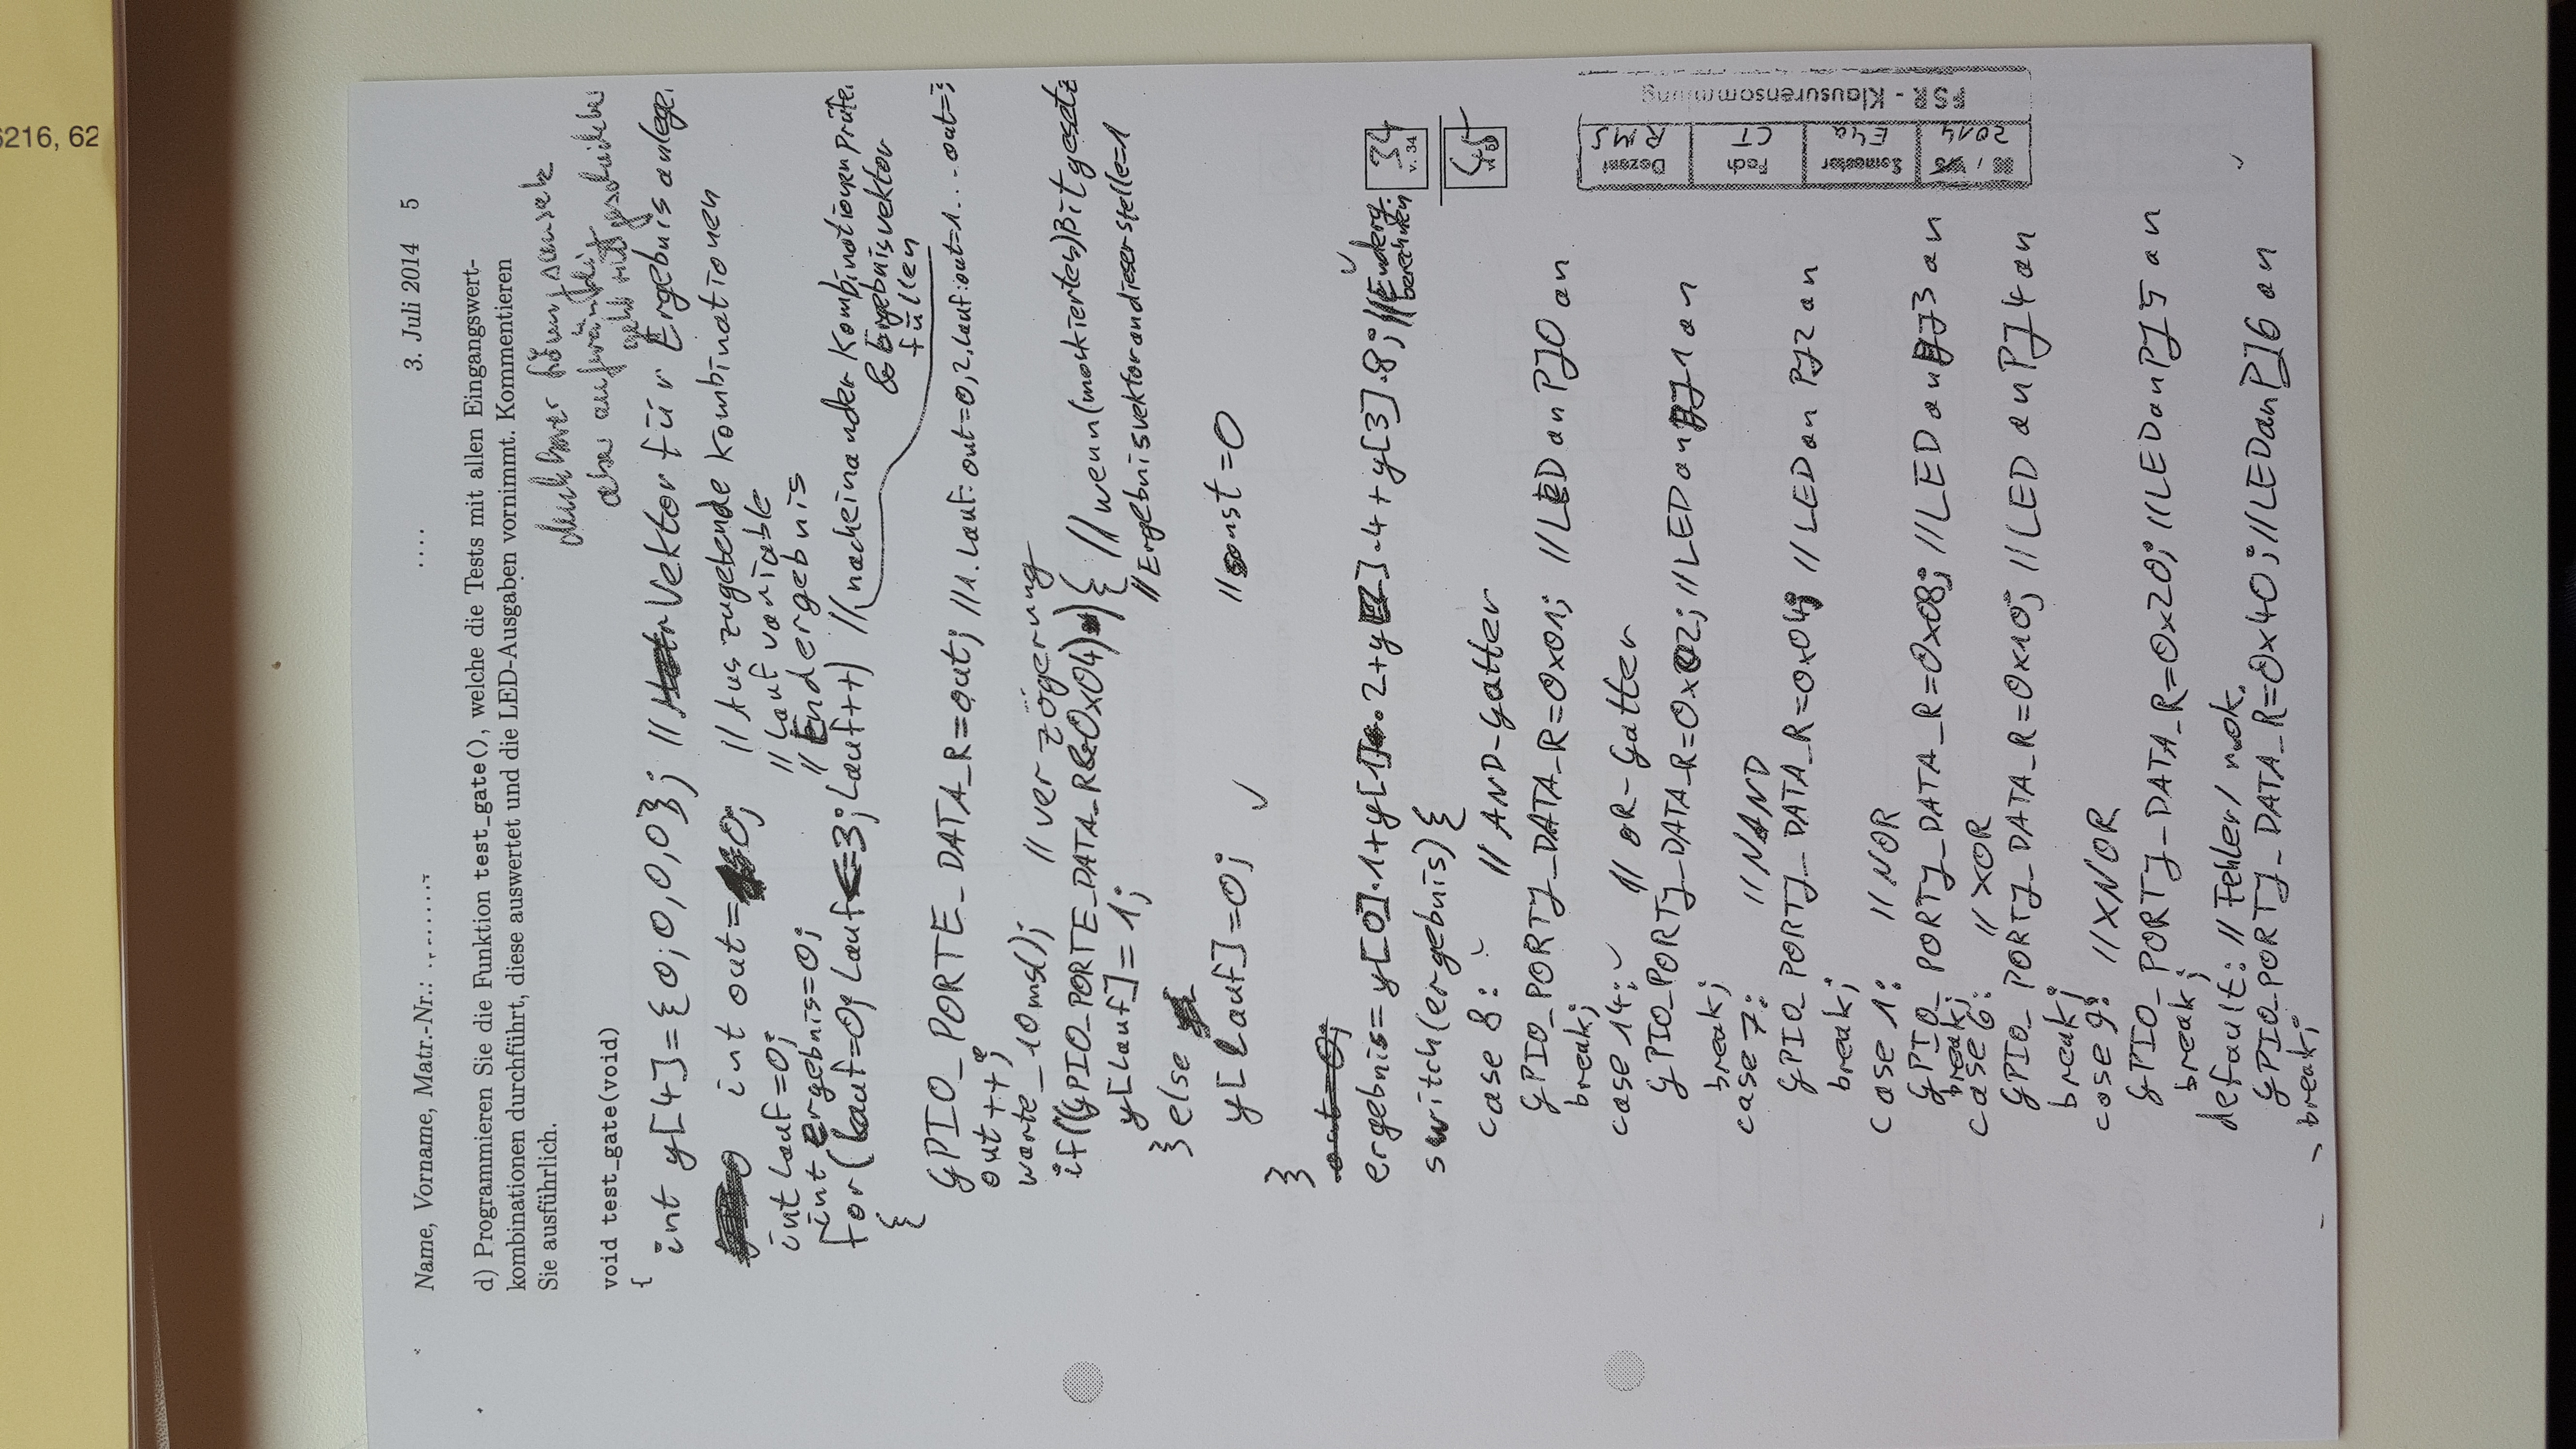 6216, 62
Name, Vorname, Matr.-Nr.:
3. Juli 2014 5
d) Programmieren Sie die Funktion test_gate(), welche die Tests mit allen Eingangswert-
kombinationen durchführt, diese auswertet und die LED-Ausgaben vornimmt. Kommentieren
Sie ausführlich.
denkbarer Lösungsansatz
aber aufwändig
geht mit geschickter
void test_gate(void)
{
int y[4]={0,0,0,0}; // Vektor für Ergebnis anlege
int out=0; // Auszugebende Kombinationen
int Lauf=0; // Laufvariable
int Ergebnis=0; // Endergebnis
for(Lauf=0; Lauf<=3; Lauf++) // nacheinander Kombinationen prüfe
& Ergebnisvektor
füllen
{
GPIO_PORTE_DATA_R=out; //1.Lauf: out=0, 2.Lauf:out=1... out=3
out++;
warte_10ms(); // verzögerung
if((GPIO_PORTE_DATA_R&0x04)){ // wenn(maskiertes)Bit gesetz
y[Lauf]=1; // Ergebnisvektor an dieser stelle=1
} else
y[Lauf]=0; // sonst =0
}
out=0;
ergebnis= y[0]·1+y[1]·2+y[2]·4+y[3]·8; //Enderg.
berechnen
34
v. 34
switch(ergebnis){
45
case 8: // AND-Gatter
GPIO_PORTJ_DATA_R=0x01; // LED an PJ0 an
break;
case 14: // OR-Gatter
GPIO_PORTJ_DATA_R=0x02; // LED an PJ1 an
break;
case 7: // NAND
GPIO_PORTJ_DATA_R=0x04; // LED an PJ2 an
break;
case 1: // NOR
GPIO_PORTJ_DATA_R=0x08; // LED an PJ3 an
break;
case 6: // XOR
GPIO_PORTJ_DATA_R=0x10; // LED an PJ4 an
break;
case 9: // XNOR
GPIO_PORTJ_DATA_R=0x20; // LED an PJ5 an
break;
default: // Fehler / n.ok.
GPIO_PORTJ_DATA_R=0x40; // LED an PJ6 an
break;
Semester Fach Dozent
2014 E4a CT RMS
FSR - Klausurensammlung